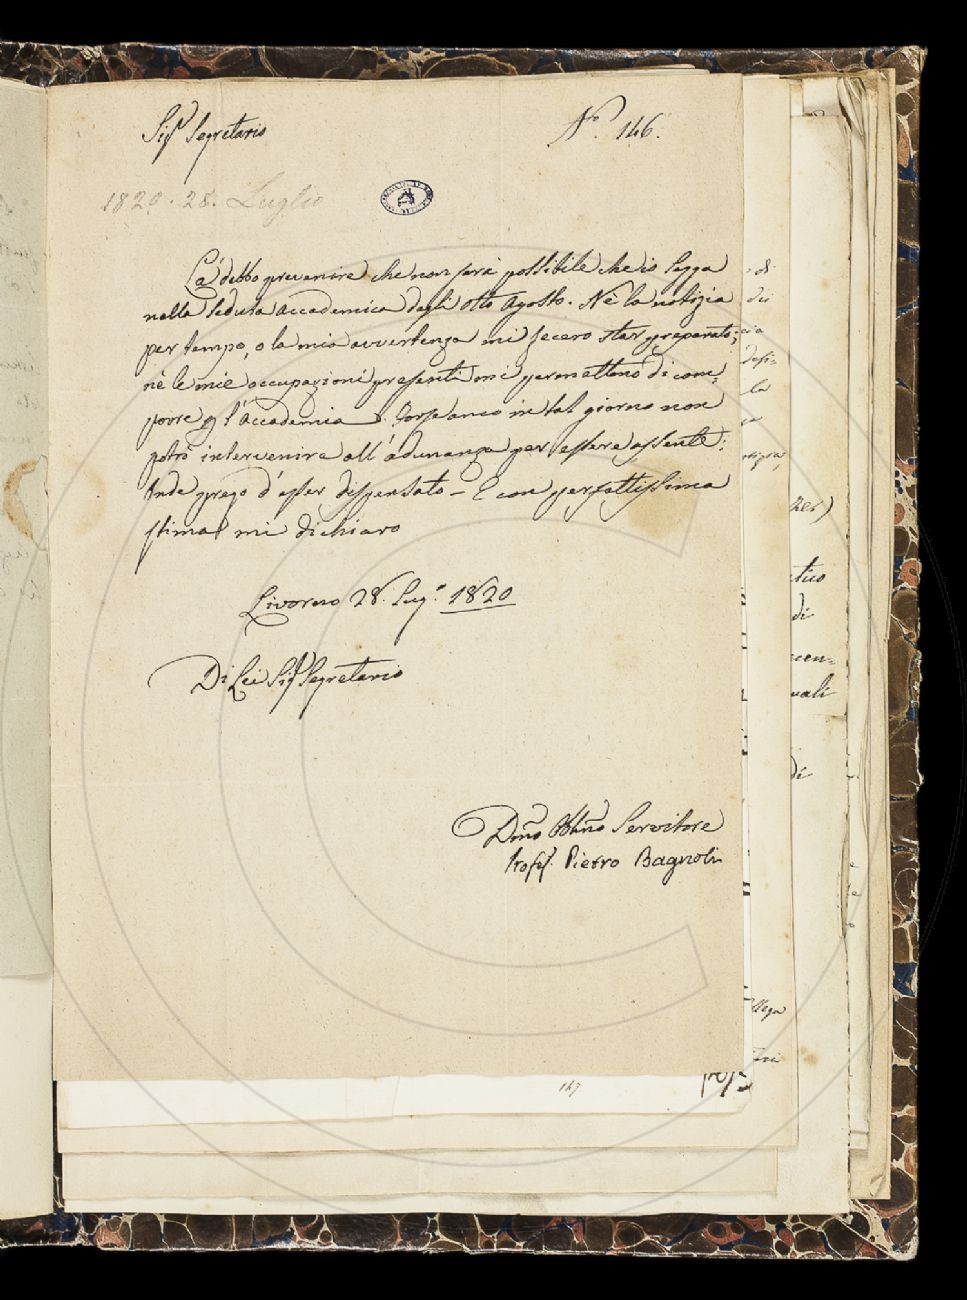 Sig.r Segretario
N.o 146.
1820. 28. Luglio
La debbo prevenire che non sarà possibile che io legga
nella seduta Accademica degli otto Agosto. Nè la notizia
per tempo, o la mia avvertenza mi fecero star preparato;
nè le mie occupazioni presenti mi permettono di com=
porre p l'Accademia. Forse anco in tal giorno non
potrò intervenire all'adunanza per essere assente.
Onde prego d'esser dispensato — E con perfettissima
stima mi dichiaro
Livorno 28. Lug.o 1820
Di Lei Sig.r Segretario
Dmo Obbmo Servitore
Profes. Pietro Bagnoli
147
di
la
di
uali
di